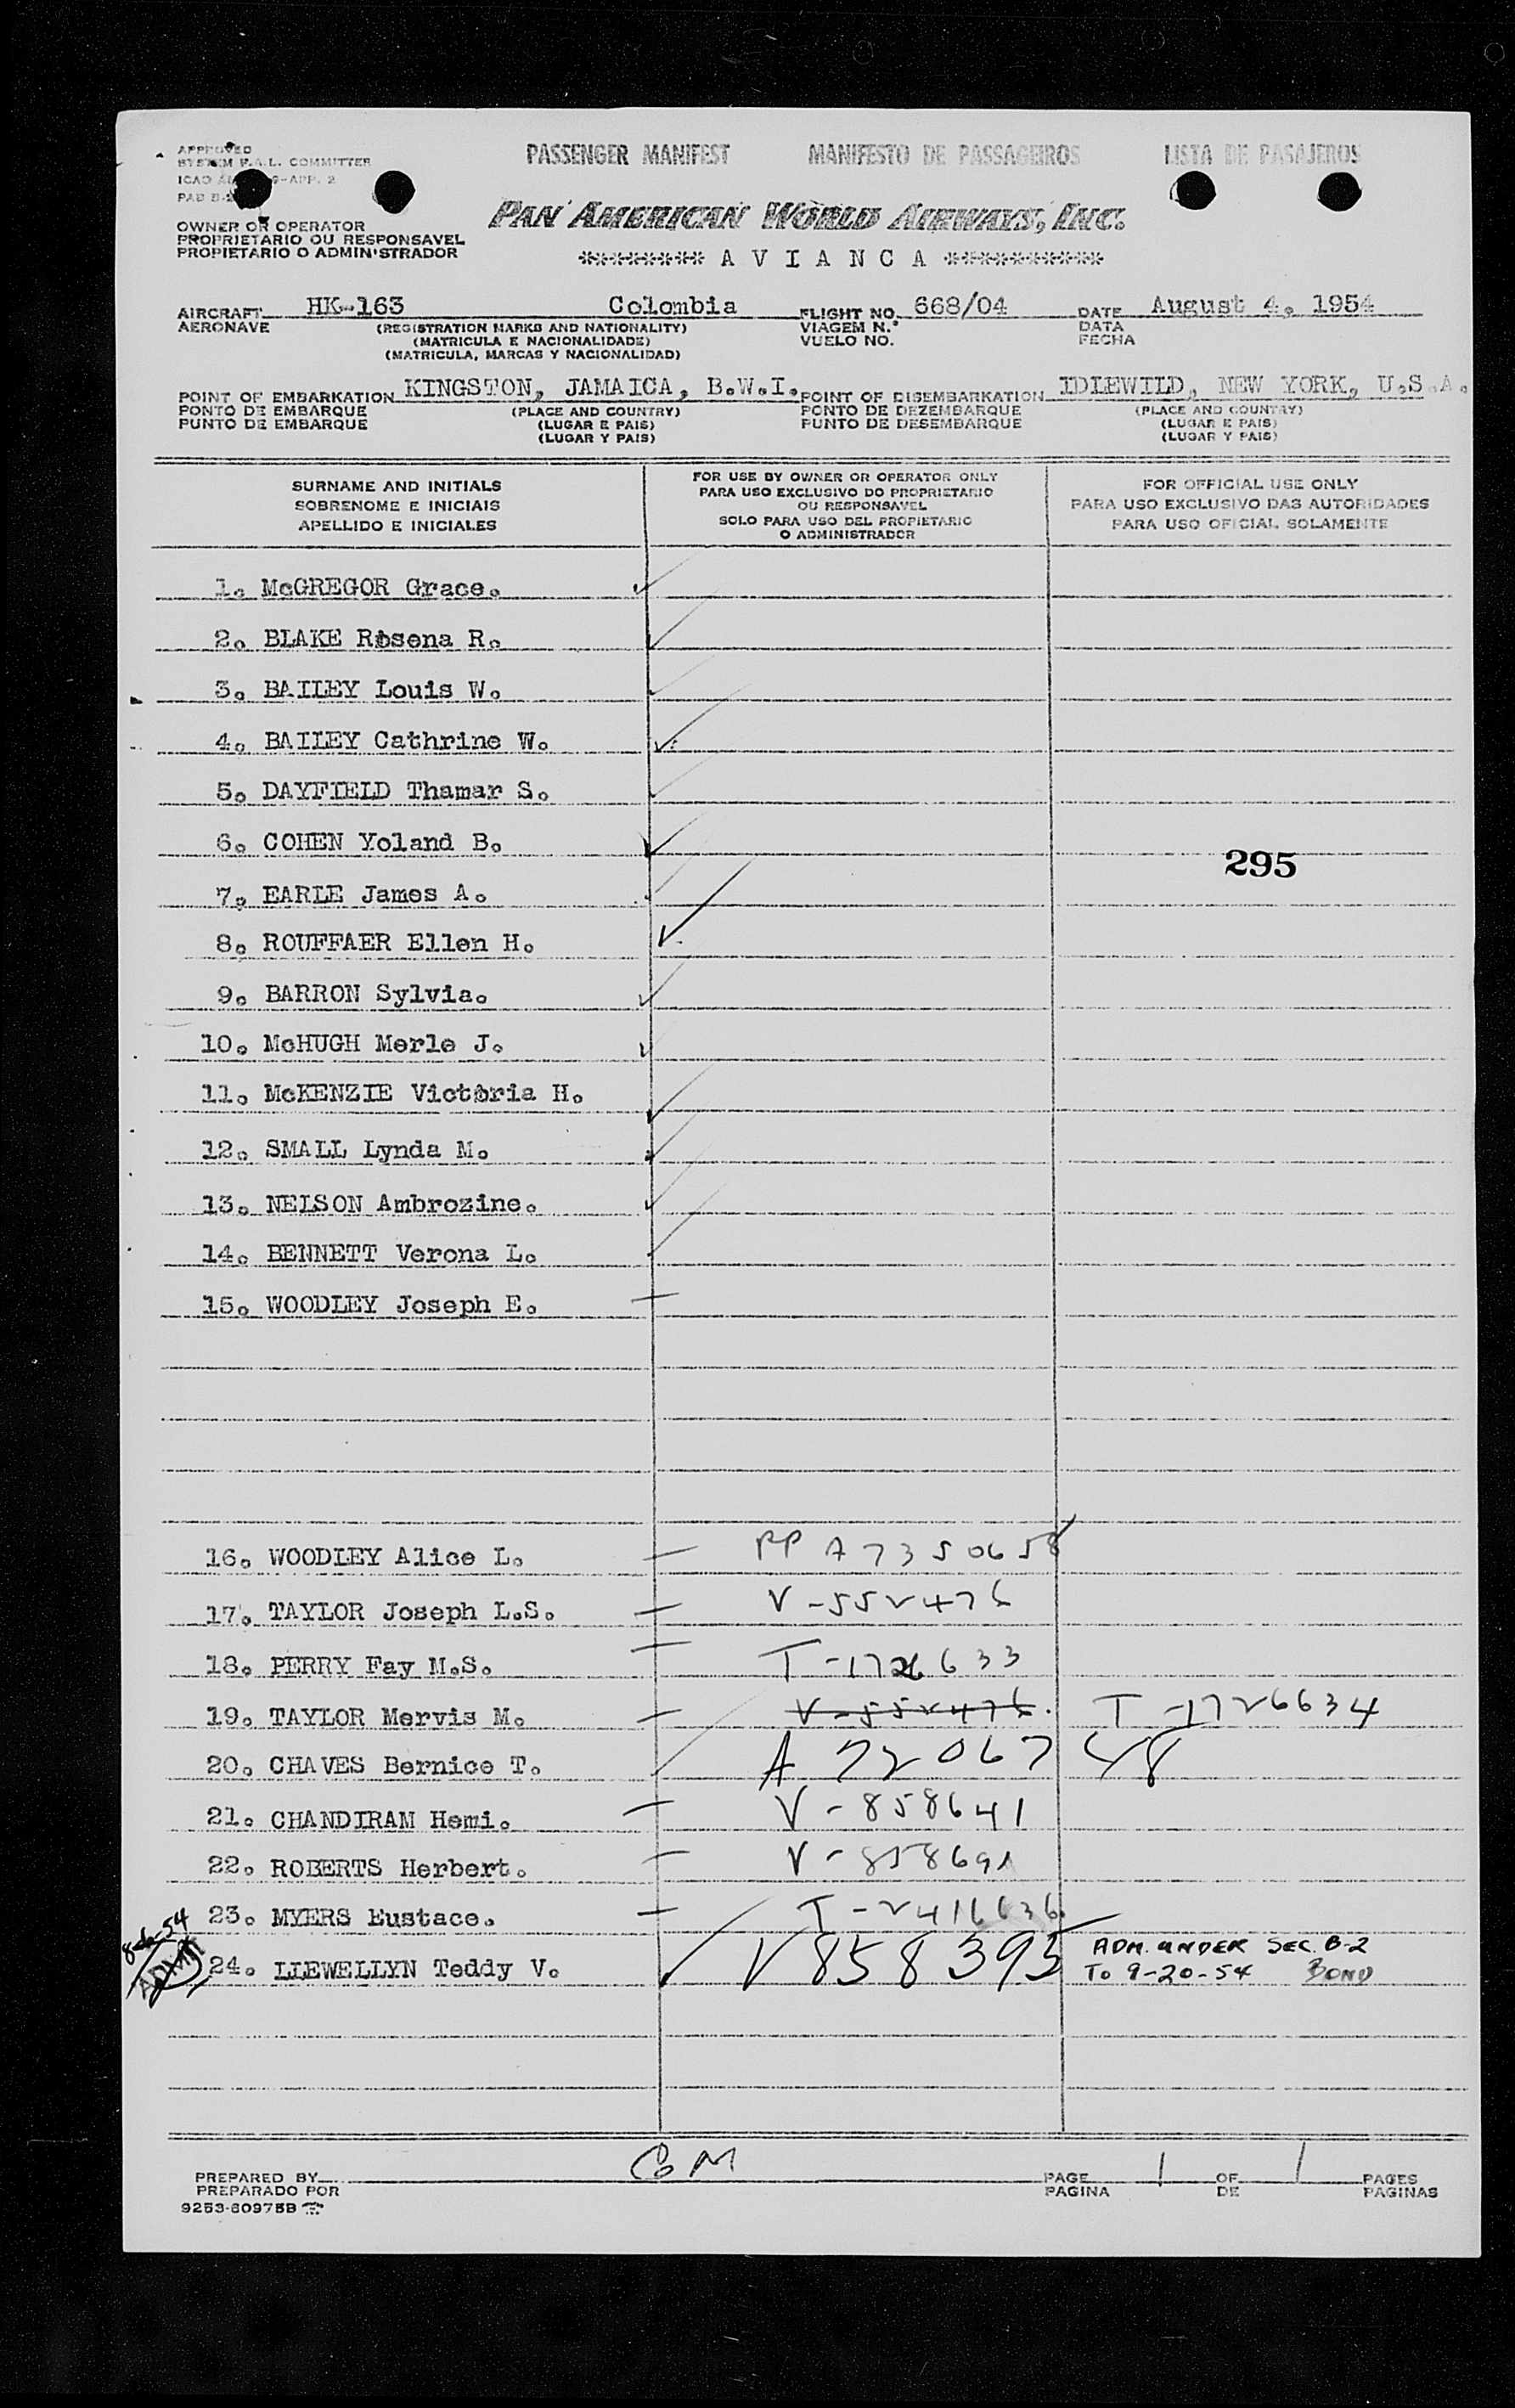 APPROVED
SYSTEM F.A.L. COMMITTEE
ICAO 9-APP. 2
PAD
PASSENGER MANIFEST MANIFESTO DE PASSAGEIROS LISTA DE PASAJEROS
PAN AMERICAN WORLD AIRWAYS, INC.
OWNER OR OPERATOR
PROPRIETARIO OU RESPONSAVEL
PROPIETARIO O ADMINISTRADOR
********* A V I A N C A ***********
AIRCRAFT HK-163 Colombia FLIGHT NO. 668/04 DATE August 4, 1954
AERONAVE (REGISTRATION MARKS AND NATIONALITY) VIAGEM N.° DATA
(MATRICULA E NACIONALIDADE) VUELO NO. FECHA
(MATRICULA, MARCAS Y NACIONALIDAD)
POINT OF EMBARKATION KINGSTON, JAMAICA, B.W.I. POINT OF DISEMBARKATION IDLEWILD, NEW YORK, U.S.A.
PONTO DE EMBARQUE (PLACE AND COUNTRY) PONTO DE DEZEMBARQUE (PLACE AND COUNTRY)
PUNTO DE EMBARQUE (LUGAR E PAIS) PUNTO DE DESEMBARQUE (LUGAR E PAIS)
(LUGAR Y PAIS) (LUGAR Y PAIS)
SURNAME AND INITIALS
SOBRENOME E INICIAIS
APELLIDO E INICIALES
FOR USE BY OWNER OR OPERATOR ONLY
PARA USO EXCLUSIVO DO PROPRIETARIO
OU RESPONSAVEL
SOLO PARA USO DEL PROPIETARIO
O ADMINISTRADOR
FOR OFFICIAL USE ONLY
PARA USO EXCLUSIVO DAS AUTORIDADES
PARA USO OFICIAL SOLAMENTE
1. McGREGOR Grace.
2. BLAKE Rosena R.
3. BAILEY Louis W.
4. BAILEY Cathrine W.
5. DAYFIELD Thamar S.
6. COHEN Yoland B.
295
7. EARLE James A.
8. ROUFFAER Ellen H.
9. BARRON Sylvia.
10. McHUGH Merle J.
11. McKENZIE Victoria H.
12. SMALL Lynda M.
13. NELSON Ambrozine.
14. BENNETT Verona L.
15. WOODLEY Joseph E.
16. WOODLEY Alice L. PP A7350658
17. TAYLOR Joseph L.S. V-552476
18. PERRY Fay M.S. T-1726633
19. TAYLOR Mervis M. V-552476. T-1726634
20. CHAVES Bernice T. A 7206748
21. CHANDIRAM Hemi. V-858641
22. ROBERTS Herbert. V-858691
23. MYERS Eustace. T-2416636
8-6-54
ADM
24. LLEWELLYN Teddy V. V858395 ADM. UNDER SEC. B-2
To 9-20-54 BOND
PREPARED BY GM PAGE 1 OF 1 PAGES
PREPARADO POR PAGINA DE PAGINAS
9253-60975B